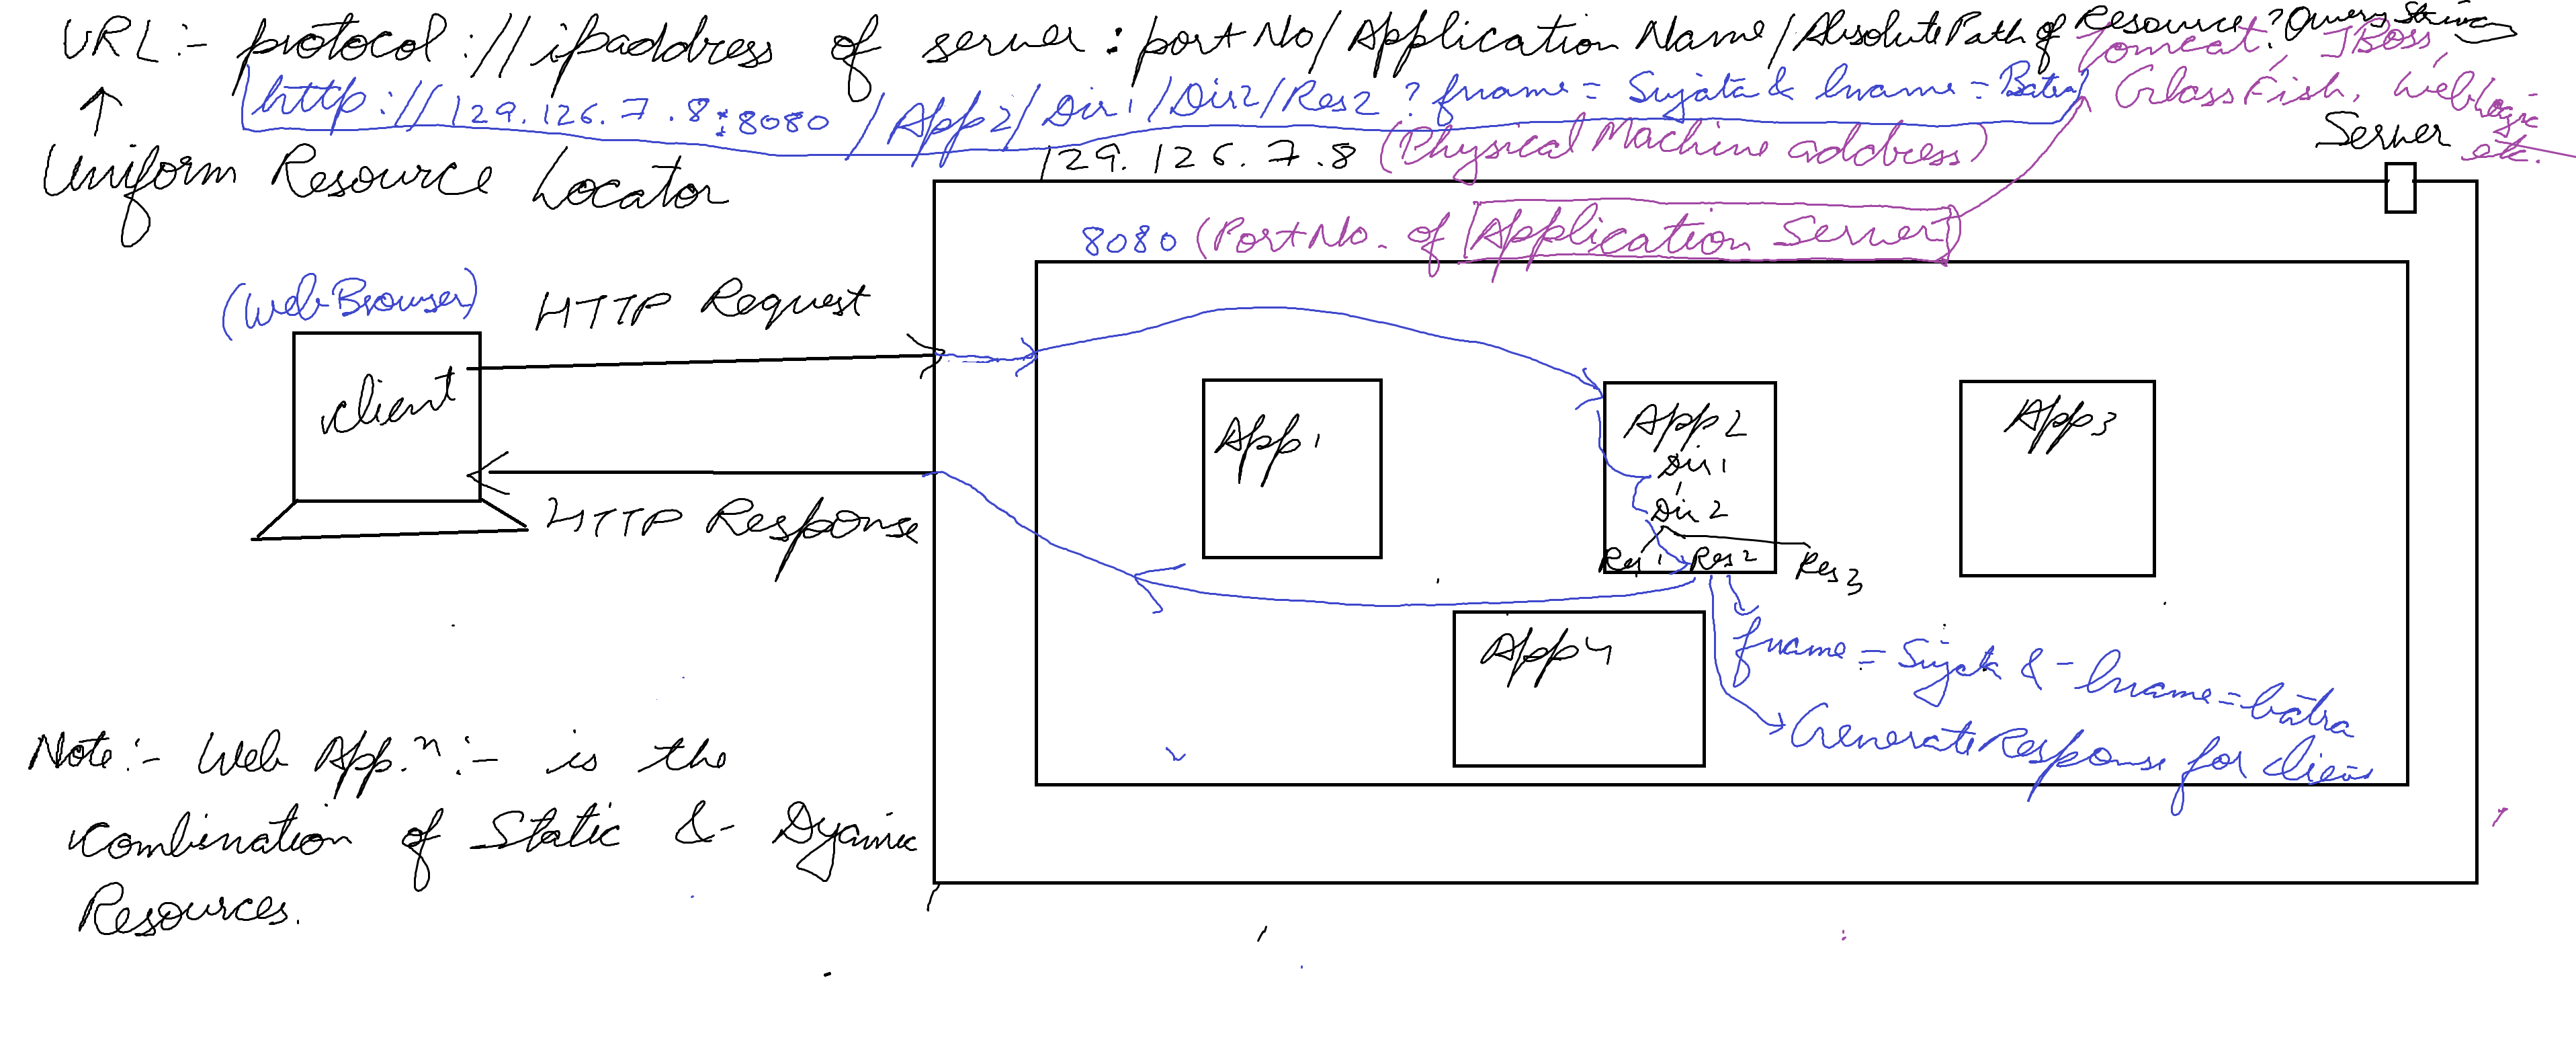 URL:- protocol://ipaddress of server:portNo/Application Name/AbsolutePath of Resource?Query String
http://129.126.7.8:8080/App2/Dir1/Dir2/Res2?fname=Sujata&lname=Batra
Tomcat, JBoss,
GlassFish, WebLogic
etc.
Uniform Resource Locator
129.126.7.8 (Physical Machine address)
Server
8080 (PortNo. of Application Server)
(Web Browser)
HTTP Request
client
HTTP Response
App1
App2
Dir1
Dir2
Res1 Res2 Res3
App3
App4
fname = Sujata & lname = batra
Generate Response for client
Note:- Web App.n:- is the
combination of Static & Dyamic
Resources.